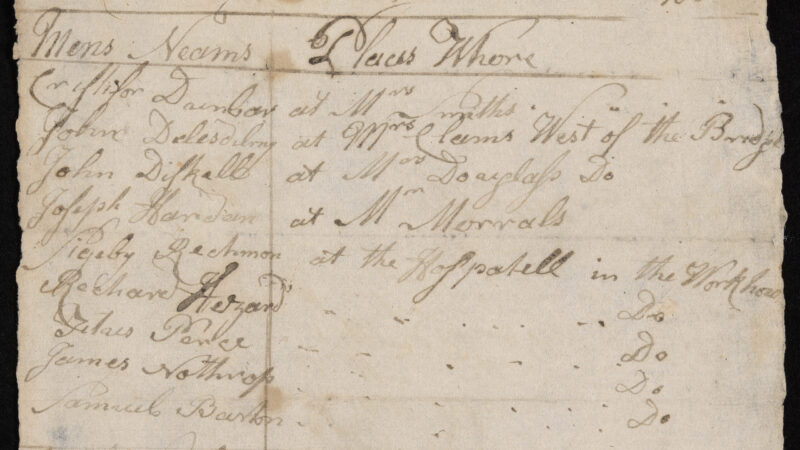 Mens Neams Places Whore
Cristifor Dunbar at Mrs Smiths
John at Mrs Clams West of the Bridge
John Diskell at Mrs Douglass Do
Joseph Hardan at Mr Morrals
Rechmon at the Hospatell in the Workhous
Rechard Hezard Do
Titus Perce Do
James Nothrop Do
Samuel Barton Do